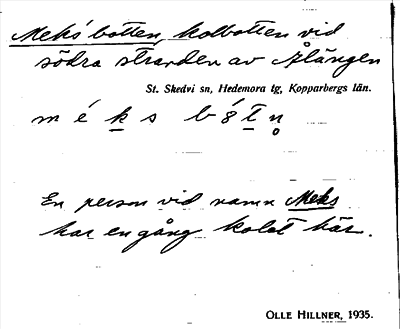 Meks'botten, kolbotten vid
södra stranden av Ålängen
St. Skedvi sn, Hedemora tg, Kopparbergs län.
m é k s b 8́ t n̥
En person vid namn Meks
har en gång kolat här.
OLLE HILLNER, 1935.